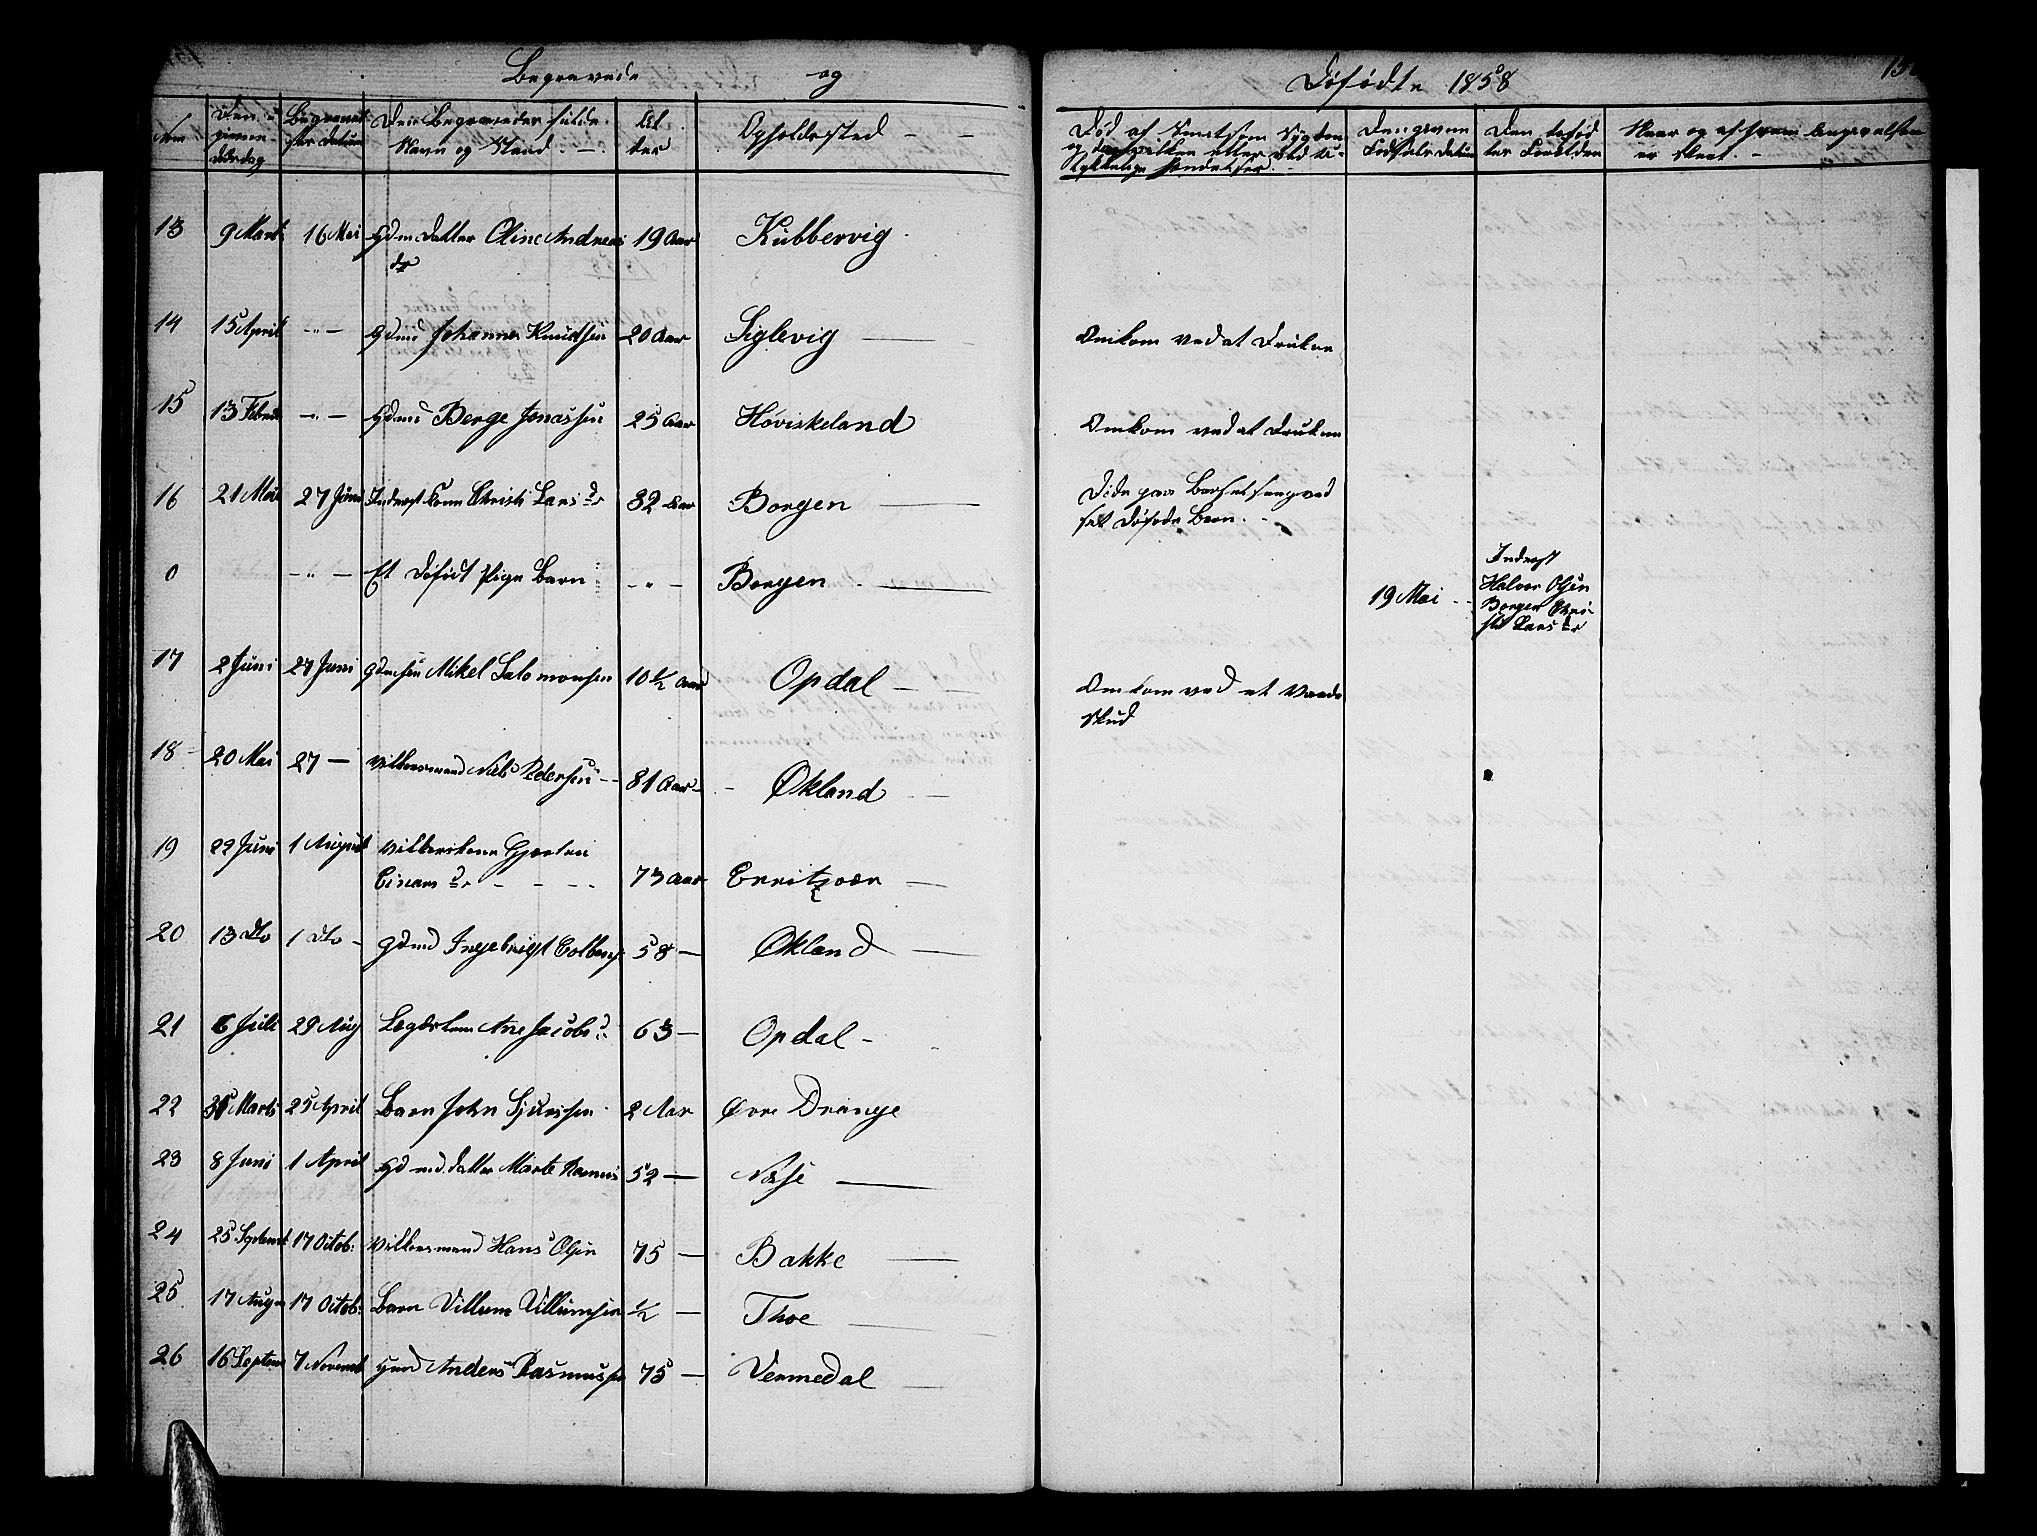 Begravede og Døfødte 1858
Num
Den opgivne Dødsdag
Begravelser Datum
Den Begravedes fulde Navn og Stand.
Alder
Opholdssted
Død af
Den givne Fødsels Datum
Den døfødtes Forældre
Naar og af hvem Angivelsen er skeet.
13 9 Marts 16 Mai Gdm datter Oline Andreas dr 19 Aar Kubbervig
14 15 April -"- Gdmd Johannes Knudsen 20 Aar Siglevig Omkom ved at Drukne
15 13 Februar -"- Gdmd Berge Jonassen 25 Aar Høviskeland Omkom ved at Drukne
16 21 Mai 27 Juni Inderst Kone Christi Lars dr 32 Aar Borgen Døde paa Barselseng ved
født Døføde Barn.
0 -"- Et Døfødt Pige Barn -"- Borgen 19 Mai
Inderst
Halvor Olsen
Borgen Chri-
sti Lars dr
17 2 Juni 27 Juni Gdmsøn Mikel Salomonsen 10 1/2 Aar Opdal Omkom ved et Vaade
skud
18 20 Mai 27 — Vilkersmand Niels Pedersen 81 Aar Økland
19 22 Juni 1 August Vilkerskone
Einars dr 73 Aar Erritzvær
20 13 Do 1 Do gdmd Ingebrigt Colbens 58 — Økland
21 6 Juli 29 Aug Lægdslem Ane Jacobs d. 63 — Opdal
22 31 Marts 25 April Barn John Sjursen 2 Aar Øvre Drange
23 8 Juni 1 April Gdmd. datter Marte Rasmus 52 — Næse
24 25 Septembr 17 Octob: Vilkersmand Hans Olsen 75 — Bakke
25 17 Augu 17 Octob: Barn Villum Villumsen 1/2 — Thoe
26 16 Septem 7 Novemb Anders Rasmussen 75 — Vermedal